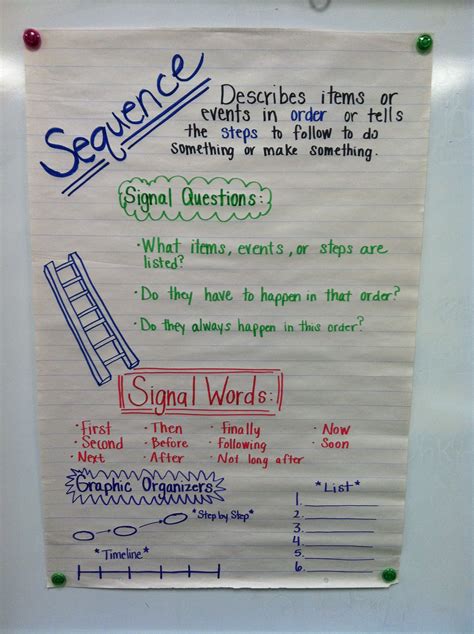 Sequence
Describes items or
events in order or tells
the steps to follow to do
something or make something.
Signal Questions:
• What items, events, or steps are
listed?
• Do they have to happen in that order?
• Do they always happen in this order?
Signal Words:
• First • Then • Finally • Now
• Second • Before • Following • Soon
• Next • After • Not long after
Graphic Organizers
*Step by Step*
*Timeline*
*List*
1.
2.
3.
4.
5.
6.